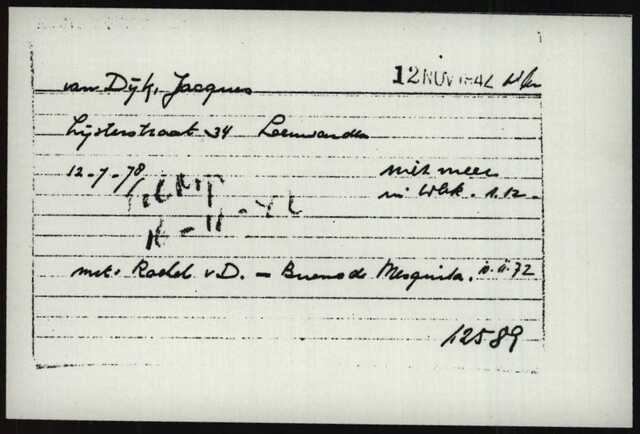 van Dijk, Jacques 12 NOV 1942 Wbr
Lijsterstraat 34 Leeuwarden
12-7-78 niet meer
in Wbk. 1.12-
met: Rachel v D. - Bueno de Mesquita. 10.11.72
12589